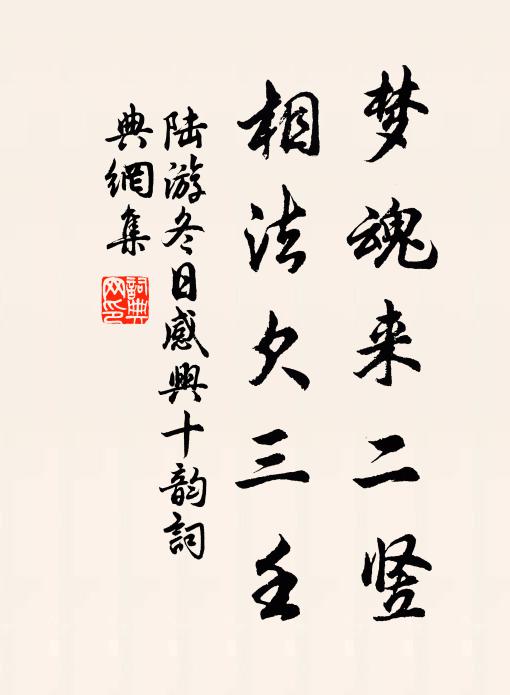 梦魂来二竖
相法欠三壬
陆游冬日感興十韵詞
典網集
詞典网印